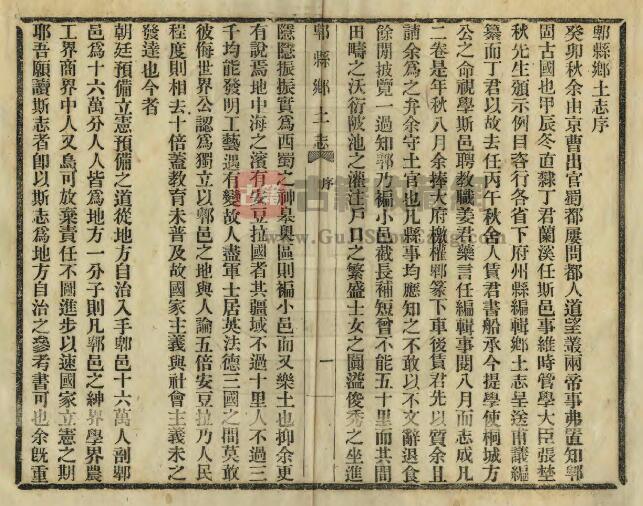 郫縣鄉土志序
癸卯秋余由京曹出官蜀都屢問都人道望叢兩帝事弗置知郫
固古國也甲辰冬直隸丁君蘭溪任斯邑事維時管學大臣張埜
秋先生頒示例目咨行各省下府州縣編輯鄉土志呈送甫叢編
纂而丁君以故去任丙午秋余人賃君書船承今提學使桐城方
公之命視學斯邑聘教職姜君藥言任編輯事閱八月而志成凡
二卷是年秋八月余捧大府檄權郫篆下車後賃君先以質余且
請余爲之弁余守土官也凡縣事均應知之不敢以不文辭退食
餘閒披覽一過知郫乃褊小邑截長補短曾不能五十里而其間
田疇之沃衍陂池之灌注戶口之繁盛士女之闐溢俊秀之坐進
郫縣鄉土志 序 一
隱隱振振實爲西蜀之神皋奧區則褊小邑而又樂土也抑余更
有說焉地中海之濱有安豆拉國者其疆域不過十里人不過三
千均能發明工藝遇有變故人盡軍士居英法德三國之間莫敢
彼侮世界公認爲獨立以郫邑之地與人論五倍安豆拉乃人民
程度則相去十倍蓋教育未普及故國家主義與社會主義未之
發達也今者
朝廷預備立憲預備之道從地方自治入手郫邑十六萬人副郫
邑爲十六萬分人人皆爲地方一分子則凡郫邑之紳界學界農
工界商界中人又烏可放棄責任不圖進步以速國家立憲之期
耶吾願讀斯志者卽以斯志爲地方自治之參考書可也余旣重
古籍 古籍收藏網
www.GuJiShouCang.com